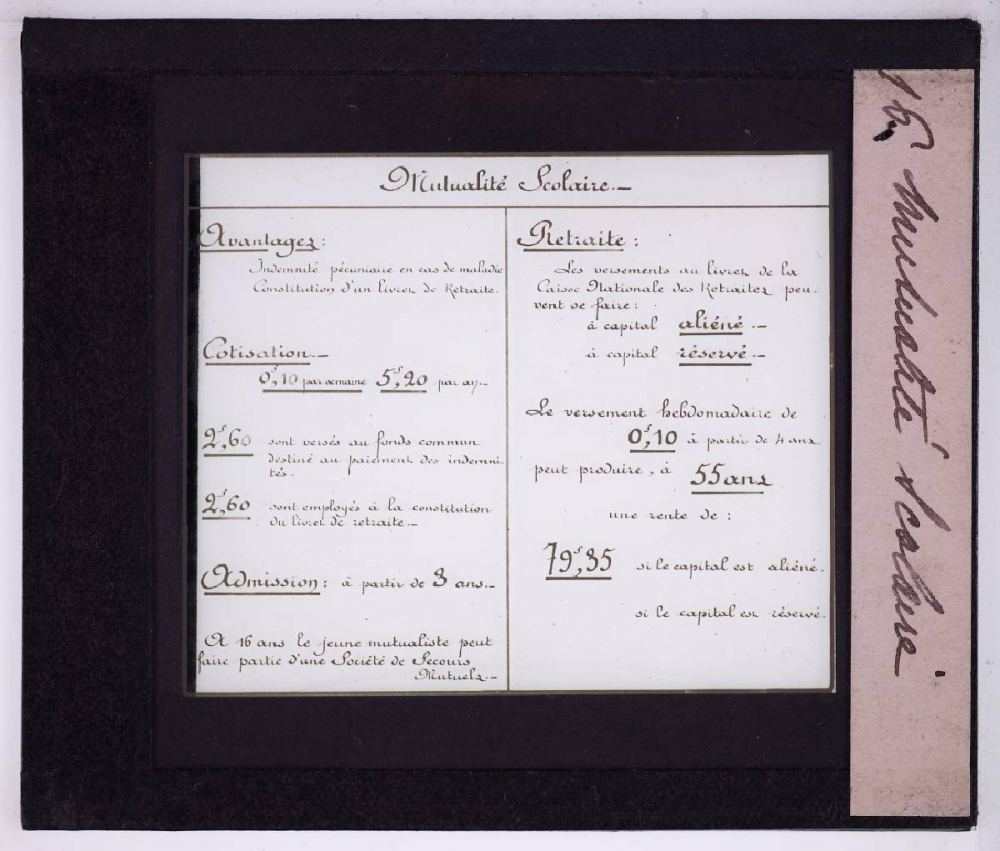 Mutualité Scolaire.—
Avantages :
Indemnité pécuniaire en cas de maladie
Constitution d'un livret de Retraite.
Cotisation.—
0f,10 par semaine 5f,20 par an.—
2f,60 sont versés au fonds commun
destiné au paiement des indemni-
tés.
2f,60 sont employés à la constitution
du livret de retraite.—
Admission : à partir de 3 ans.—
A 16 ans le jeune mutualiste peut
faire partie d'une Société de Secours
Mutuels.—
Retraite :
Les versements au livret de la
Caisse Nationale des Retraites peu-
vent se faire :
à capital aliéné.—
à capital réservé.—
Le versement hebdomadaire de
0f,10 à partir de 4 ans
peut produire, à 55 ans
une rente de :
79f,35 si le capital est aliéné.
si le capital est réservé.
16, Mutualité Scolaire